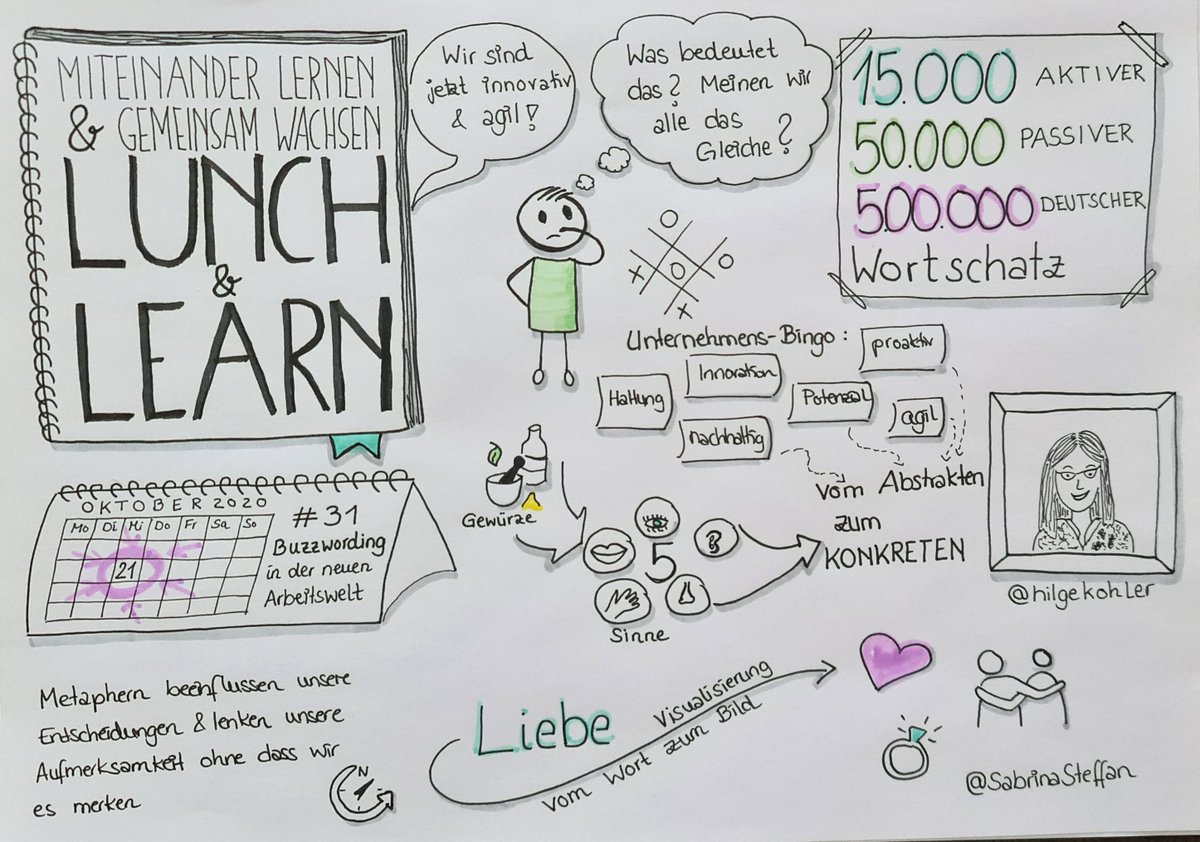 MITEINANDER LERNEN
& GEMEINSAM WACHSEN
LUNCH
&
LEARN
Wir sind
jetzt innovativ
& agil!
Was bedeutet
das? Meinen wir
alle das
Gleiche?
15.000 AKTIVER
50.000 PASSIVER
500.000 DEUTSCHER
Wortschatz
O
X O O
X
Unternehmens-Bingo:
proaktiv
Innovation
Haltung
Potenzial
agil
nachhaltig
vom Abstrakten
zum
KONKRETEN
@hilgekohler
OKTOBER 2020
Mo Di Mi Do Fr Sa So
21
#31
Buzzwording
in der neuen
Arbeitswelt
Gewürze
5
Sinne
Metaphern beeinflussen unsere
Entscheidungen & lenken unsere
Aufmerksamkeit ohne dass wir
es merken
N
Liebe
Visualisierung
vom Wort zum Bild
@SabrinaSteffan